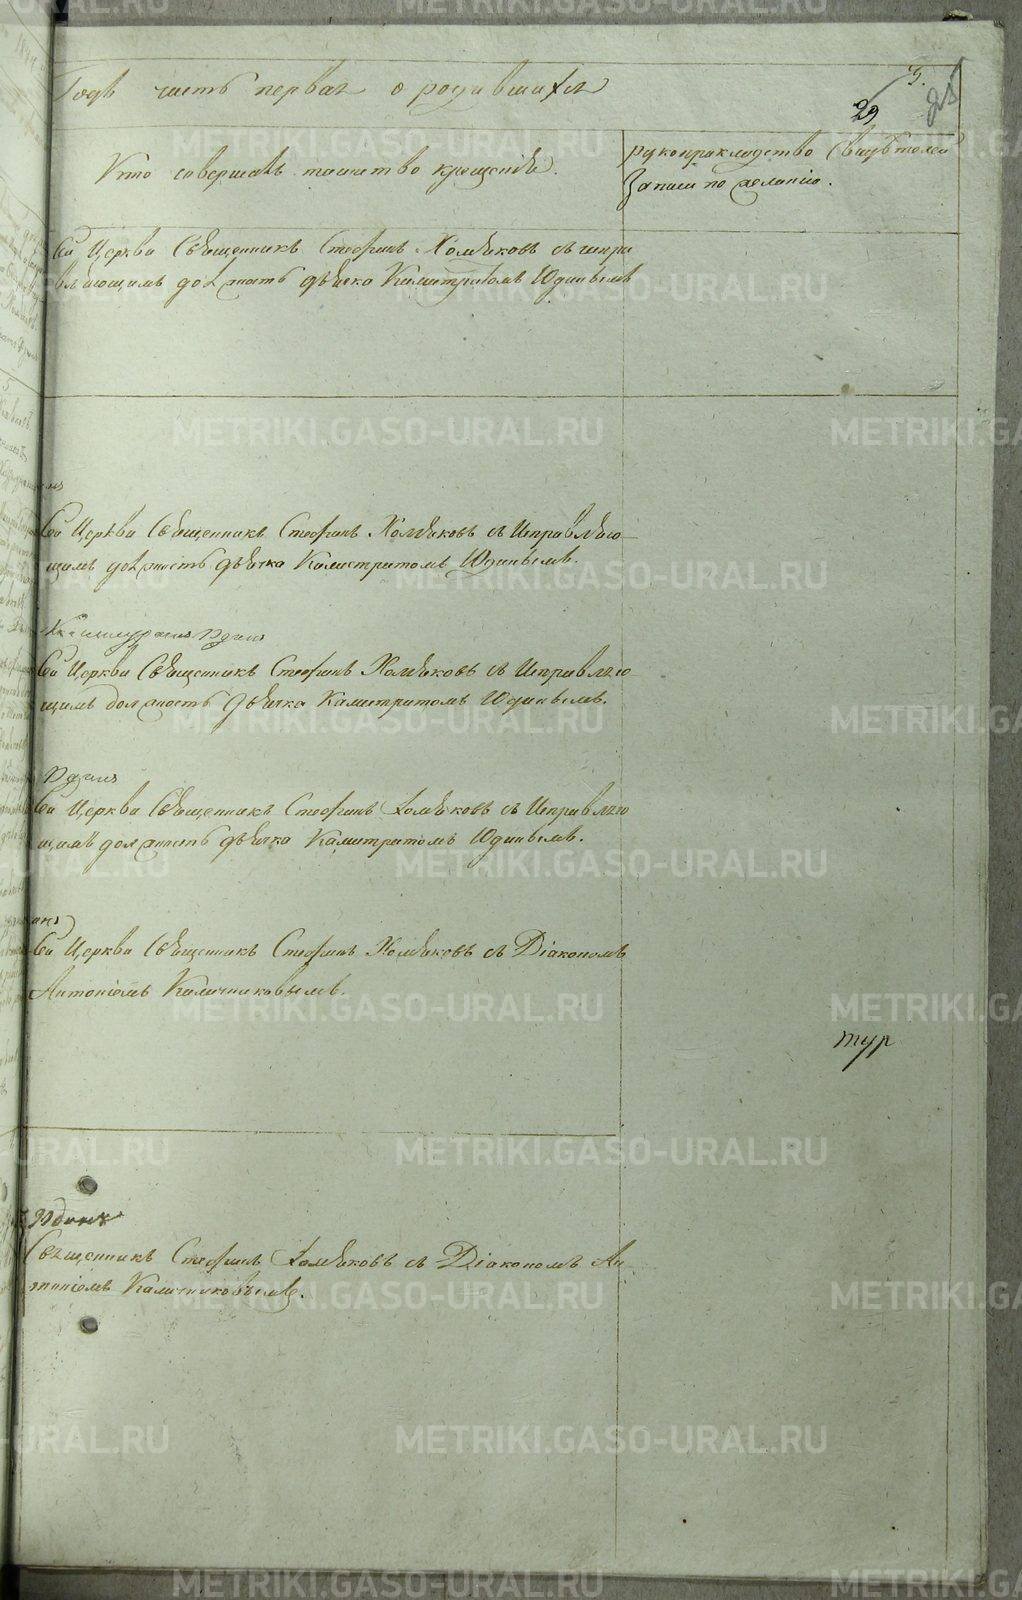 Годъ часть первая о родившихся
5.
29
25
Кто совершалъ таинство крещенія.
рукоприкладство свидѣтелей
Записи по желанію.
Сей Церкви Священникъ Стефанъ Хомяковъ съ испра
вляющимъ должность дьячка Калистратомъ Юдинымъ
Сей Церкви Священникъ Стефанъ Хомяковъ съ Исправляю
щимъ должность дьячка Калистратомъ Юдинымъ.
Сей Церкви Священникъ Стефанъ Хомяковъ съ Исправляю
щимъ должность Дьячка Калистратомъ Юдинымъ.
Сей Церкви Священникъ Стефанъ Хомяковъ съ Исправляю
щимъ должность дьячка Калистратомъ Юдинымъ.
Сей Церкви Священникъ Стефанъ Хомяковъ съ Діакономъ
Антоніемъ Калачниковымъ.
тур
Священникъ Стефанъ Хомяковъ съ Діакономъ Ан
тоніемъ Калачниковымъ.
METRIKI.GASO-URAL.RU